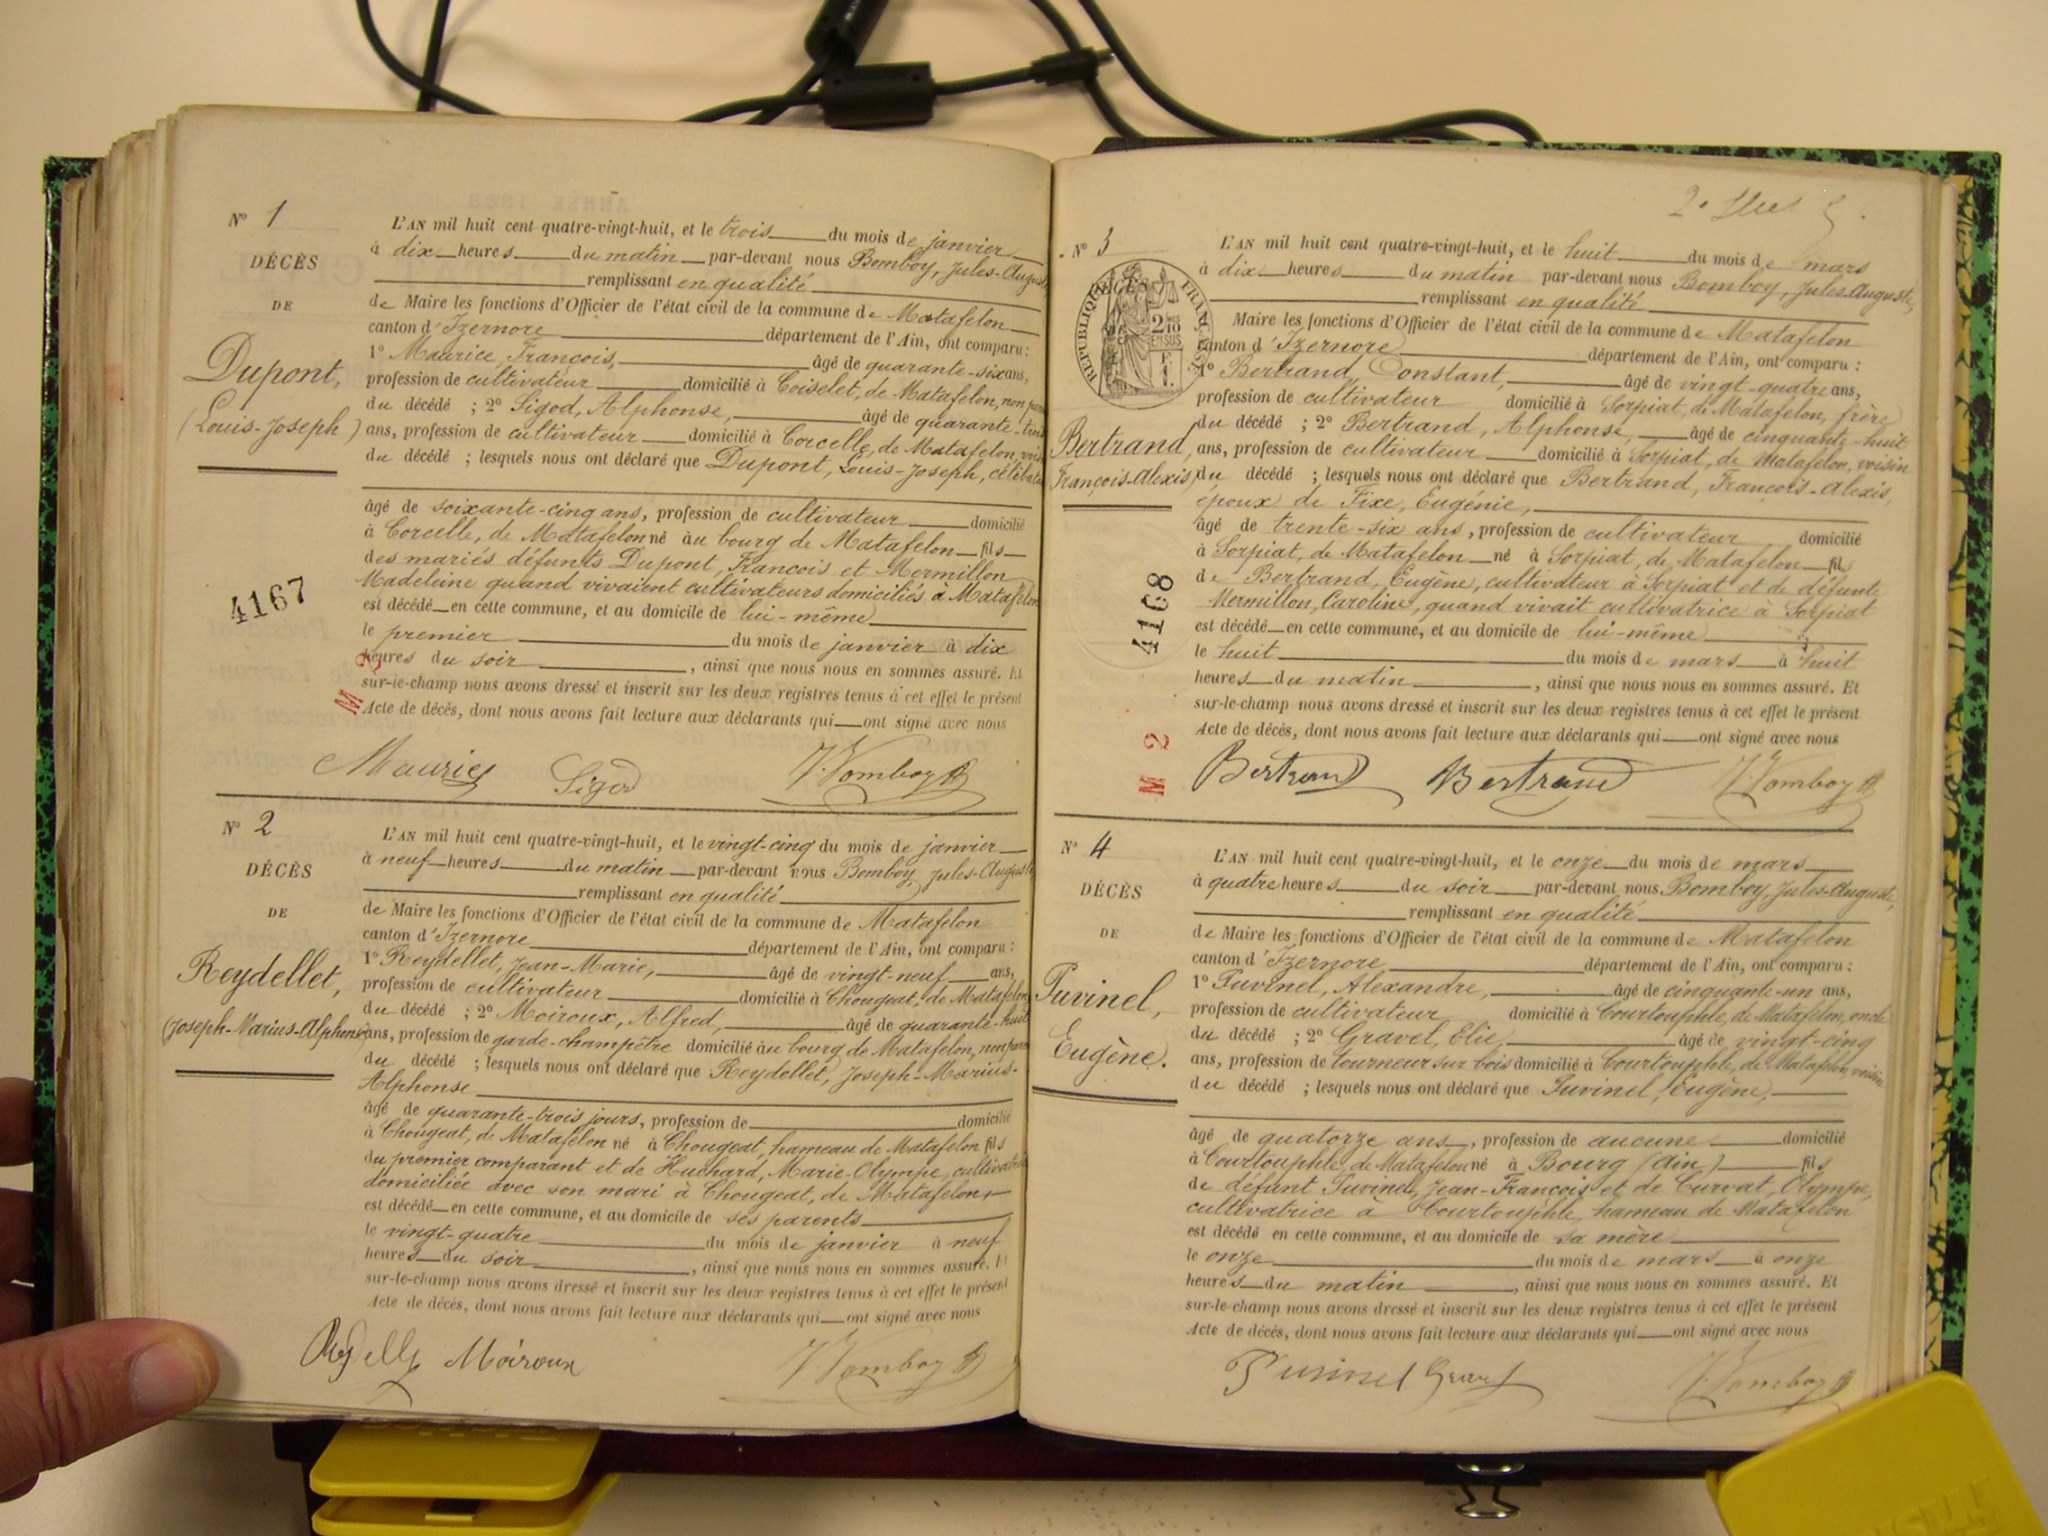 N° 1
DÉCÈS
DE
Dupont,
(Louis-Joseph)
4167
M 2
L'AN mil huit cent quatre-vingt-huit, et le trois du mois de janvier
à dix heures du matin par-devant nous Bomboy, Jules-Auguste
remplissant en qualité
de Maire les fonctions d'Officier de l'état civil de la commune de Matafelon
canton d'Izernore département de l'Ain, ont comparu :
1° Maurice François, âgé de quarante-six ans,
profession de cultivateur domicilié à Coiselet, de Matafelon, non
du décédé ; 2° Sigod, Alphonse, âgé de quarante-trois
ans, profession de cultivateur domicilié à Corcelle, de Matafelon,
du décédé ; lesquels nous ont déclaré que Dupont, Louis-Joseph,
âgé de soixante-cinq ans, profession de cultivateur domicilié
à Corcelle, de Matafelon né au bourg de Matafelon fils
des mariés défunts Dupont, François et Mermillon
Madeleine quand vivaient cultivateurs domiciliés à Matafelon
est décédé en cette commune, et au domicile de lui-même
le premier du mois de janvier à dix
heures du soir , ainsi que nous nous en sommes assuré. Et
sur-le-champ nous avons dressé et inscrit sur les deux registres tenus à cet effet le présent
Acte de décès, dont nous avons fait lecture aux déclarants qui ont signé avec nous
Maurice Sigod J. Bomboy
N° 2
DÉCÈS
DE
Reydellet,
(Joseph-Marius-Alphonse)
L'AN mil huit cent quatre-vingt-huit, et le vingt-cinq du mois de janvier
à neuf heures du matin par-devant nous Bomboy, Jules-Auguste
remplissant en qualité
de Maire les fonctions d'Officier de l'état civil de la commune de Matafelon
canton d'Izernore département de l'Ain, ont comparu :
1° Reydellet, Jean-Marie, âgé de vingt-neuf ans,
profession de cultivateur domicilié à Chougeat, de Matafelon
du décédé ; 2° Moiroux, Alfred, âgé de quarante-huit
ans, profession de garde-champêtre domicilié au bourg de Matafelon, non
du décédé ; lesquels nous ont déclaré que Reydellet, Joseph-Marius-
Alphonse
âgé de quarante-trois jours, profession de domicilié
à Chougeat, de Matafelon né à Chougeat, hameau de Matafelon fils
du premier comparant et de Huchard, Marie-Olympe, cultivatrice
domiciliée avec son mari à Chougeat, de Matafelon
est décédé en cette commune, et au domicile de ses parents
le vingt-quatre du mois de janvier à neuf
heures du soir , ainsi que nous nous en sommes assuré. Et
sur-le-champ nous avons dressé et inscrit sur les deux registres tenus à cet effet le présent
Acte de décès, dont nous avons fait lecture aux déclarants qui ont signé avec nous
Moiroux J. Bomboy
N° 3
RÉPUBLIQUE FRANÇAISE
Bertrand,
François-Alexis,
4168
M 2
L'AN mil huit cent quatre-vingt-huit, et le huit du mois de mars
à dix heures du matin par-devant nous Bomboy, Jules-Auguste,
remplissant en qualité
Maire les fonctions d'Officier de l'état civil de la commune de Matafelon
canton d'Izernore département de l'Ain, ont comparu :
1° Bertrand, Constant, âgé de vingt-quatre ans,
profession de cultivateur domicilié à Sorpiat, de Matafelon, frère
du décédé ; 2° Bertrand, Alphonse, âgé de cinquante-huit
ans, profession de cultivateur domicilié à Sorpiat, de Matafelon, voisin
du décédé ; lesquels nous ont déclaré que Bertrand, François-Alexis,
époux de Fixe, Eugénie,
âgé de trente-six ans, profession de cultivateur domicilié
à Sorpiat, de Matafelon né à Sorpiat, de Matafelon fils
de Bertrand, Eugène, cultivateur à Sorpiat et de défunte
Mermillon, Caroline, quand vivait cultivatrice à Sorpiat
est décédé en cette commune, et au domicile de lui-même
le huit du mois de mars à huit
heures du matin , ainsi que nous nous en sommes assuré. Et
sur-le-champ nous avons dressé et inscrit sur les deux registres tenus à cet effet le présent
Acte de décès, dont nous avons fait lecture aux déclarants qui ont signé avec nous
Bertrand Bertrand J. Bomboy
N° 4
DÉCÈS
DE
Juvinel,
Eugène.
L'AN mil huit cent quatre-vingt-huit, et le onze du mois de mars
à quatre heures du soir par-devant nous Bomboy, Jules-Auguste,
remplissant en qualité
de Maire les fonctions d'Officier de l'état civil de la commune de Matafelon
canton d'Izernore département de l'Ain, ont comparu :
1° Juvinel, Alexandre, âgé de cinquante-un ans,
profession de cultivateur domicilié à Courtouphle, de Matafelon, oncle
du décédé ; 2° Gravel, Elie, âgé de vingt-cinq
ans, profession de tourneur sur bois domicilié à Courtouphle, de Matafelon, voisin
du décédé ; lesquels nous ont déclaré que Juvinel, Eugène,
âgé de quatorze ans, profession de aucune domicilié
à Courtouphle, de Matafelon né à Bourg (Ain) fils
de défunt Juvinel, Jean-François et de Curvat, Olympe,
cultivatrice à Courtouphle, hameau de Matafelon
est décédé en cette commune, et au domicile de sa mère
le onze du mois de mars à onze
heures du matin , ainsi que nous nous en sommes assuré. Et
sur-le-champ nous avons dressé et inscrit sur les deux registres tenus à cet effet le présent
Acte de décès, dont nous avons fait lecture aux déclarants qui ont signé avec nous
Juvinel Gravel J. Bomboy